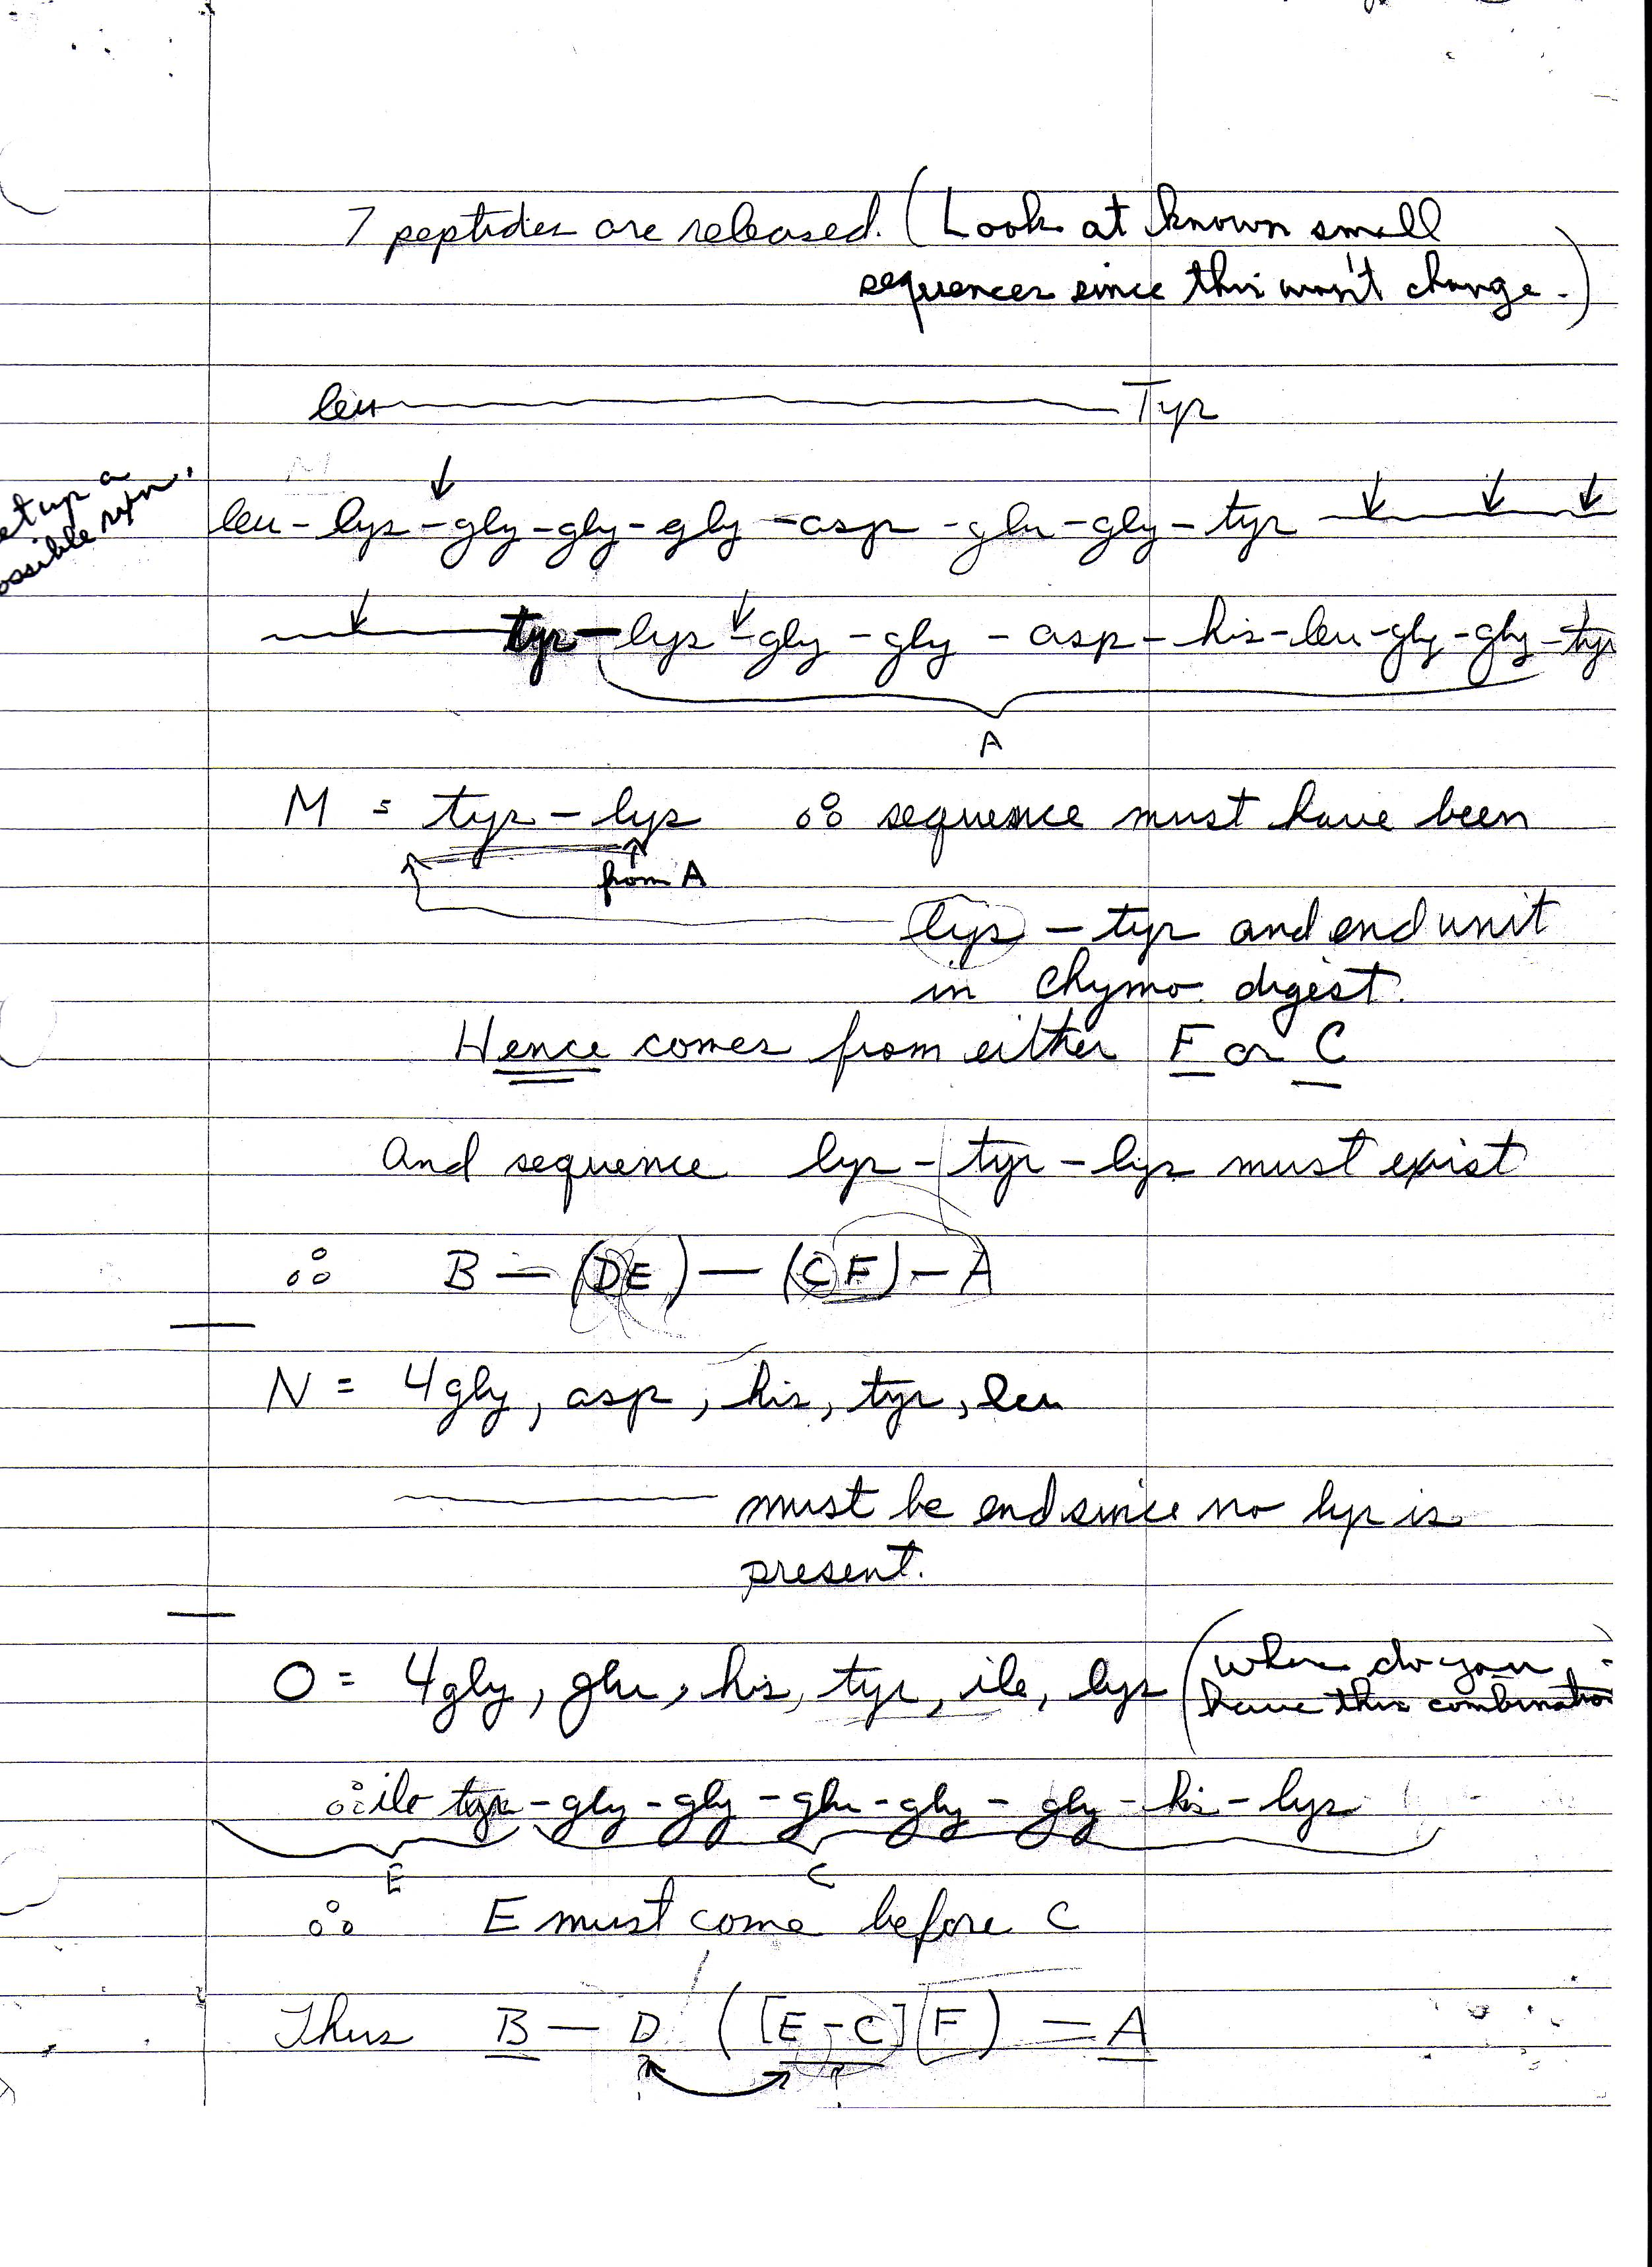 7 peptides are released. (Look at known small
sequences since this won't change.)
leu Tyr
et up a
ossible rxn.
leu - lys - gly - gly - gly - asp - glu - gly - tyr
tyr - lys - gly - gly - asp - his - leu - gly - gly - tyr
A
M = tyr - lys ∴ sequence must have been
from A
lys - tyr and end unit
in chymo. digest.
Hence comes from either F or C
And sequence lys - tyr - lys must exist
∴ B — (DE) — (CF) — A
N = 4gly, asp, his, tyr, leu
must be end since no lys is
present.
O = 4gly, glu, his, tyr, ile, lys (where do you
have this combination
∴ ile tyr - gly - gly - glu - gly - gly - his - lys
E C
∴ E must come before C
Thus B — D ([E - C] F) — A